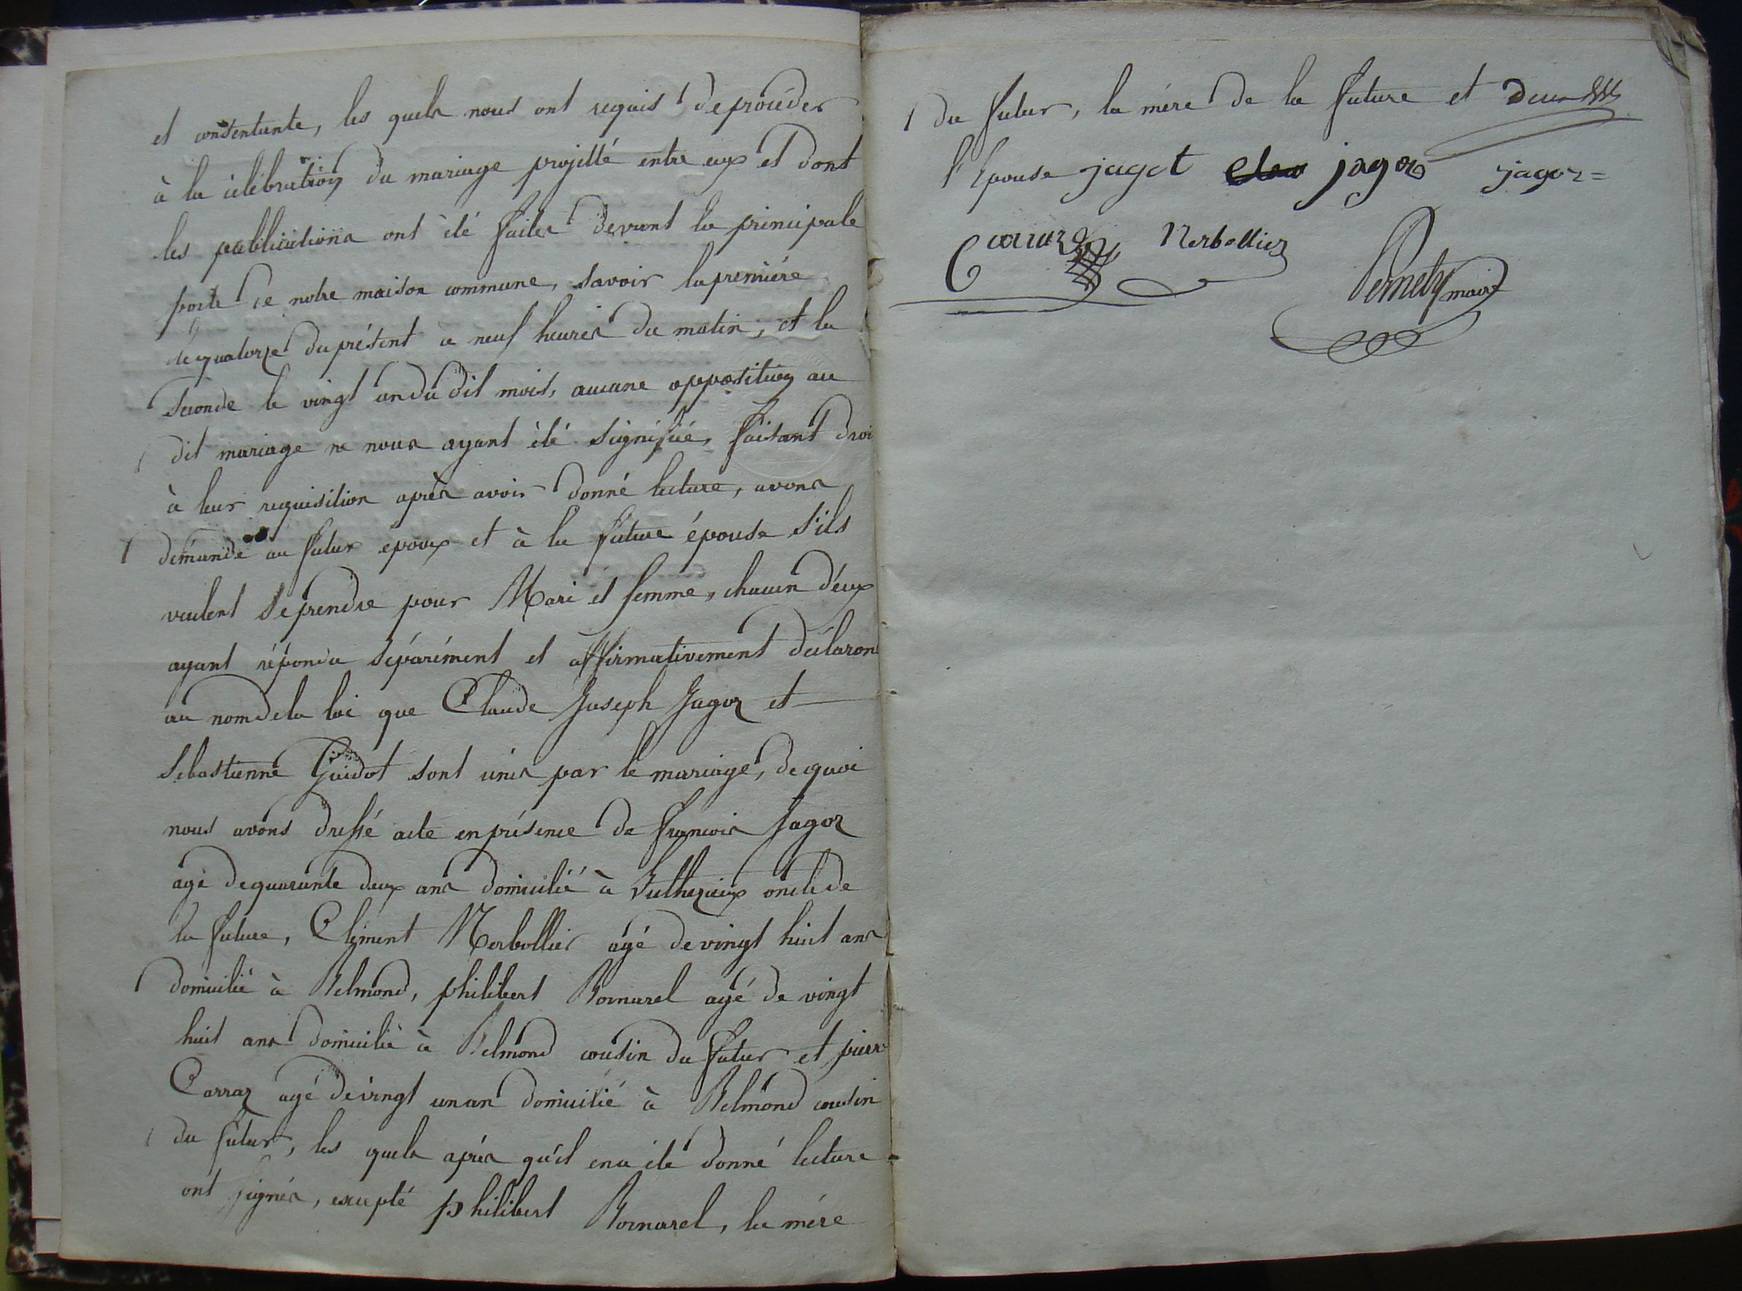 et consentante, les quels nous ont requis de procéder
à la célébration du mariage projetté entre eux et dont
les publications ont été faites devant la principale
porte de notre maison commune, savoir la première
le quatorze du présent a neuf heures du matin, et la
seconde le vingt un du dit mois, aucune opposition au
dit mariage ne nous ayant été signifiée, faisant droi
à leur requisition après avoir donné lecture, avons
demandé au futur epoux et à la future épouse s'ils
veulent se prendre pour Mari et femme, chacun d'eux
ayant répondu séparément et affirmativement déclaron
au nom de la loi que Claude Joseph Jagoz et
Sebastienne Guidot sont unis par le mariage, de quoi
nous avons dressé acte en présence de françois Jagoz
agé de quarante deux ans domicilié à oncle de
la future, Clément Nerbollier agé de vingt huit ans
domicilié à Belmond, philibert Bornarel agé de vingt
huit ans domicilié à Belmond cousin du futur et pierr
Carraz agé de vingt un an domicilié à Belmond cousin
du futur, les quels après qu'il en a été donné lecture
ont signés, excepté philibert Bornarel, la mére
du futur, la mére de la future et
l'Epouse jagot jagoz jagoz =
Nerbollier
Pernety maire